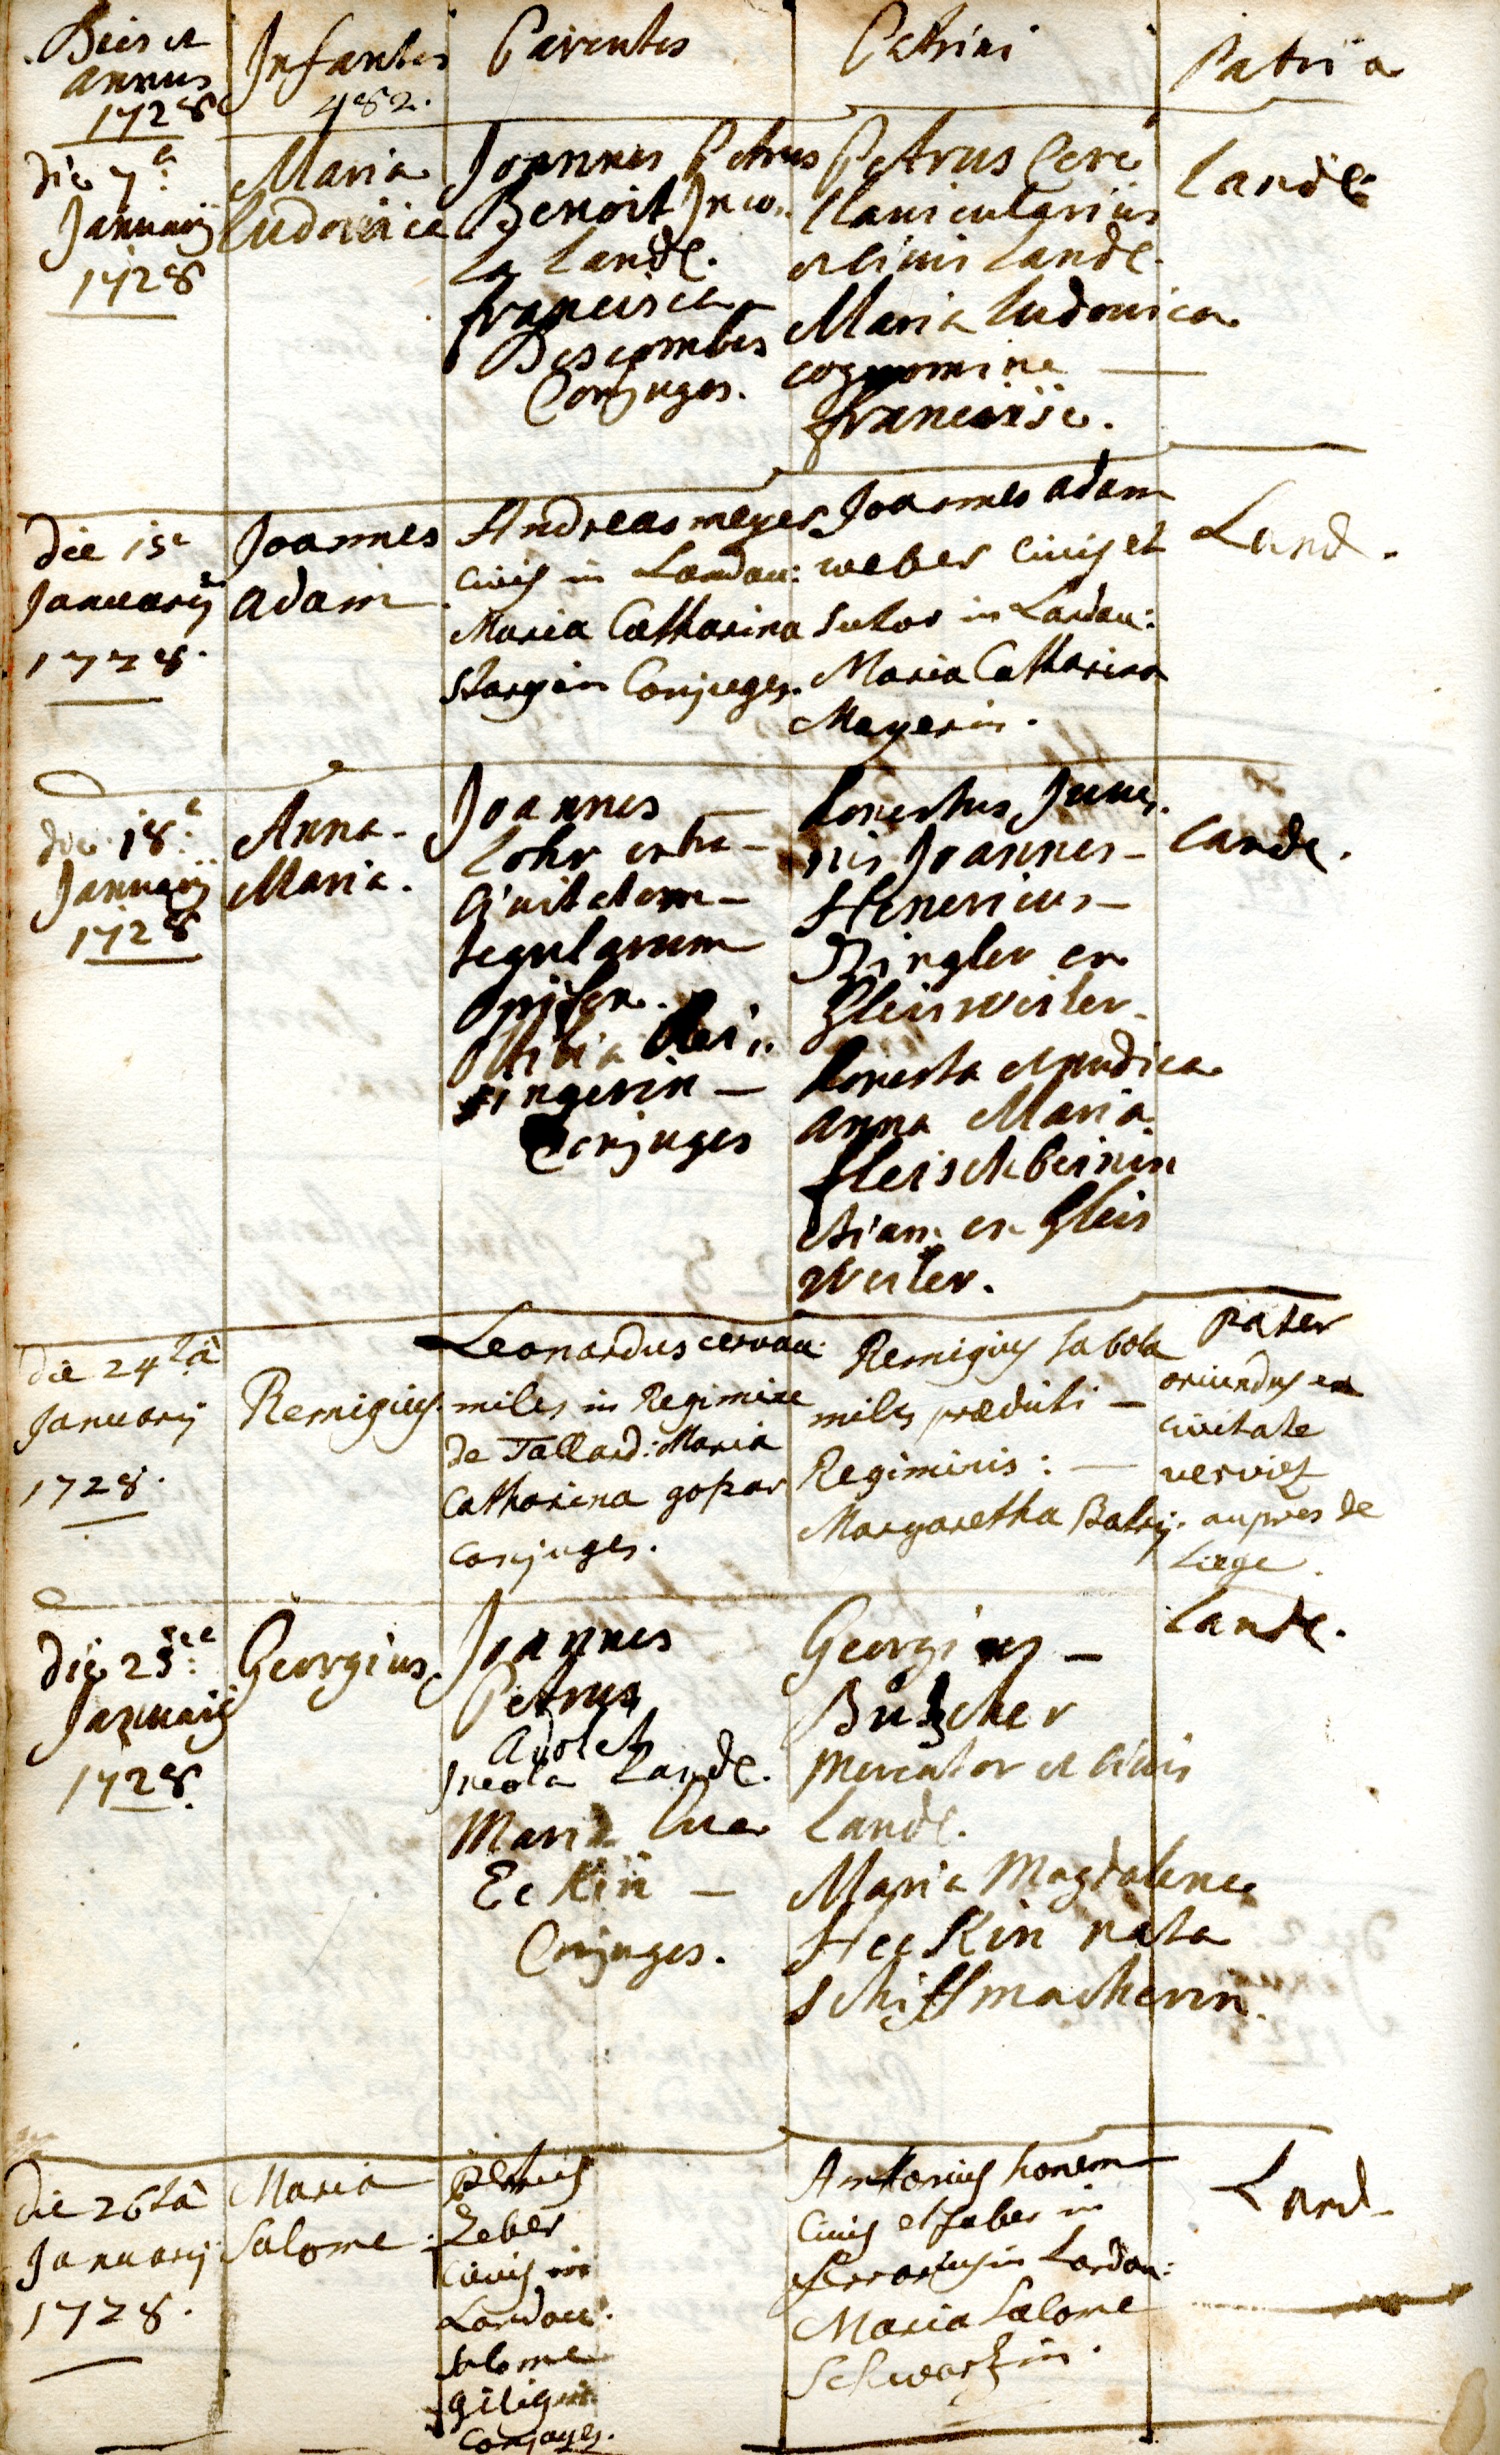 Dies et
annus
1728
Infantes
482.
Parentes
Patrini
Patria
die 7a
Januarij
1728
Maria
ludovica
Joannes Petrus
Benoit Inco-
la Landĕ.
francisca
Descombes
Conjuges.
Petrus Cere
Clanicularius
et Civis Landĕ.
Maria ludovica
cognomine —
francoise.
Landĕ.
Die 15a
Januarij
1728.
Joannes
adam
Andreas meyer
civis in Landau:
Maria Catharina
Conjuges.
Joannes adam
weber Civis et
Sutor in Landau:
Maria Catharina
Mayerin.
Land.
die 18a
Januarij
1728
Anna-
Maria.
Joannes —
Lohr extra-
Civitatem-
tegularum
opifex.
Ottilia
singerin —
Conjuges
honestus Juve-
nis Joannes-
Henericus-
Ringler ex
Gleisweiler.
honesta et pudica
anna Maria
fleischbeinin
etiam ex Gleis
weiler.
Landĕ.
die 24ta
Januarij
1728.
Remigius.
Leonardus cervau:
miles in Regimine
de Tallard: Maria
Catharina gopar
conjuges.
Remigius Sabola
miles prædicti —
Regiminis: —
Margaretha
Pater
oriundus ex
civitate
verviet
aupres de
Liege.
die 25a
Januarij
1728.
Georgius
Joannes
Petrus
Incola Landĕ.
Maria Eva
Eckin —
Conjuges.
Georgius —
Butscher
Mercator et Civis
Landĕ.
Maria Magdalena
Heckin nata
schiffmacherin.
Landĕ.
die 26ta
Januarij
1728.
Maria
Salome.
Petrus
Zeber
Civis in
Landau.
Salome
Conjuges.
Antonius honem
Civis et faber in
ferrarius in Landau:
Maria Salome
Schwartzin.
Land.